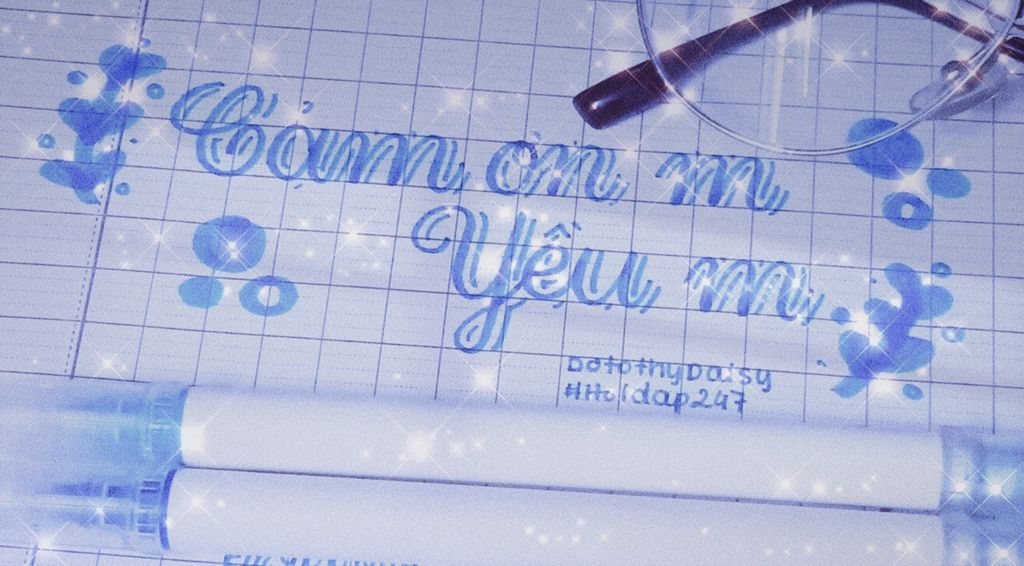 Cảm ơn m
Yêu m
DorothyDaisy
#Hoidap247